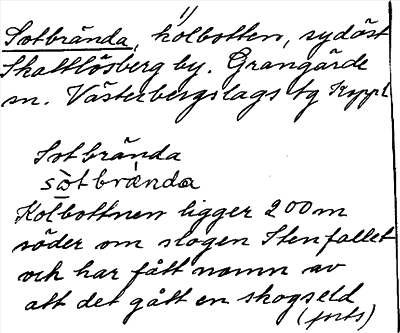 Sotbrända, kolbotten, sydöst
Skattlösberg by. Grangärde
sn. Västerbergslags tg Koppl
Sotbrända
sòtbrènda
Kolbottnen ligger 200m
söder om slogen Stenfallet
och har fått namn av
att det gått en skogseld
(forts)